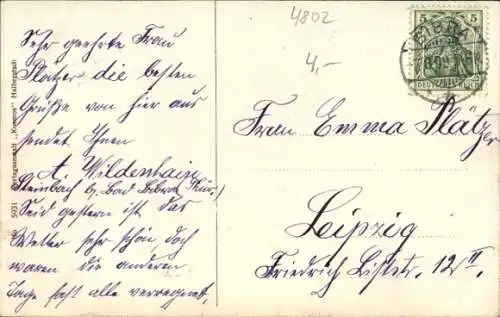 4802
4,-
Sehr geehrte Frau
Platzer die besten
Grüße von hier aus
sendet Ihnen
A. Wildenhain
Steinbach b/ Bad Liebenst. Thür.)
Seid gestern ist das
Wetter sehr schön, doch
waren die anderen
Tage fast alle verregnet.
Frau Emma Plätzer
Leipzig
Friedrich Liststr. 12 II
5031 Verlagsanstalt Halberstadt
5 5
DEUTSCHES REICH